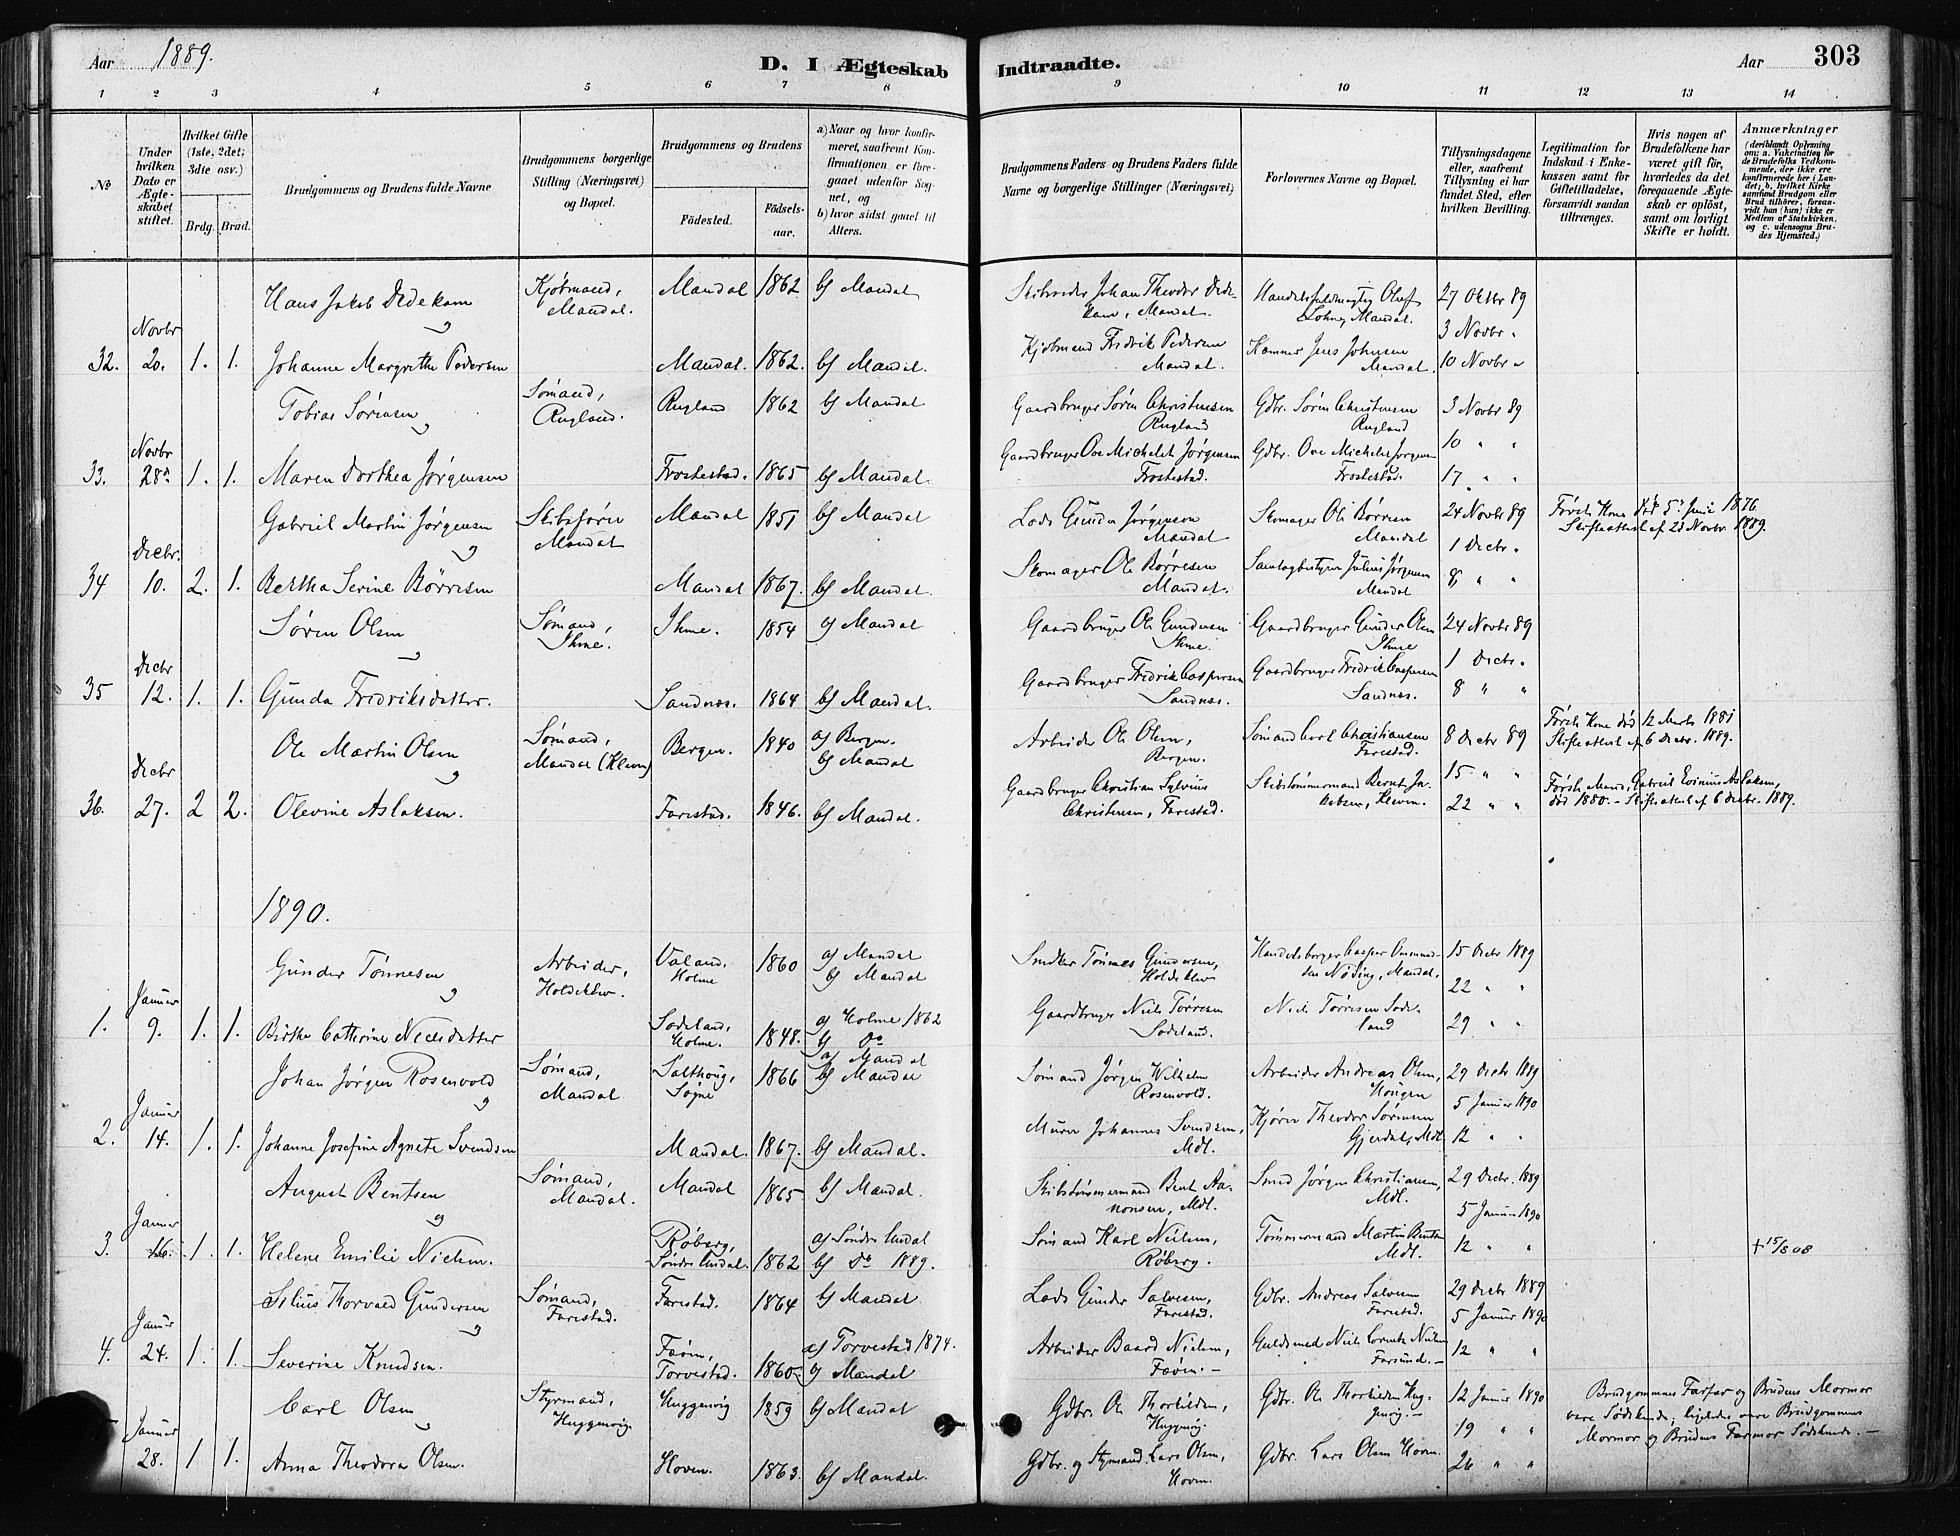 Aar 1889.
D. I Ægteskab Indtraadte.
Aar 303
1 2 3 4 5 6 7 8 9 10 11 12 13 14
№
Under hvilken Dato er Ægteskabet stiftet.
Hvilket Gifte (1ste, 2det; 3die osv.)
Brdg. Brud.
Brudgommens og Brudens fulde Navne
Brudgommens borgerlige Stilling (Næringsvei) og Bopæl.
Brudgommens og Brudens
Fødested. Fødselsaar.
a) Naar og hvor konfirmeret, saafremt Konfirmationen er foregaaet udenfor Sognet, og
b) hvor sidst gaaet til Alters.
Brudgommens Faders og Brudens Faders fulde Navne og borgerlige Stillinger (Næringsvei)
Forlovernes Navne og Bopæl.
Tillysningsdagene eller, saafremt Tillysning ei har fundet Sted, efter hvilken Bevilling.
Legitimation for Indskud i Enkekassen samt for Giftetilladelse, forsaavidt saadan tiltrænges.
Hvis nogen af Brudefolkene har været gift før, hvorledes da det foregaaende Ægteskab er opløst, samt om lovligt Skifte er holdt.
Anmærkninger (deriblandt Oplysning om: a. Vakcination for de Brudefolks Vedkommende, der ikke ere konfirmerede her i Landet; b. hvilket Kirkesamfund Brudgom eller Brud tilhører, forsaavidt han (hun) ikke er Medlem af Statskirken, og c. udensogns Brudes Hjemsted.)
Hans Jakob Dedekam Kjøbmand, Mandal. Mandal 1862 b) Mandal Johan Theodor Dedekam, Mandal. Handelsfuldmægtig Olaf Lohne, Mandal. 27 Oktbr 89
3 Novbr "
32. Novbr 20. 1. 1. Johanne Margrethe Pedersen Mandal. 1862. b) Mandal. Kjøbmand Fredrik Pedersen Mandal. Jens Johnsen Mandal. 10 Novbr "
Tobias Sørensen Sømand, Rugland. Rugland 1862 b) Mandal Gaardbruger Søren Christensen Rugland Gdbr. Søren Christensen Rugland 3 Novbr 89
10 " "
33. Novbr 28de 1. 1. Maren Dorthea Jørgensen Frostestad. 1865 b) Mandal. Gaardbruger Ove Michelet Jørgensen Frostestad. Gdbr. Ove Michelet Jørgensen Frostestad. 17 " "
Gabriel Martin Jørgensen Skibsfører Mandal Mandal 1851 b) Mandal Lods Gunder Jørgensen Mandal Skomager Ole Børresen Mandal 24 Novbr 89 Første Kone død 5te Juni 1876
Skifteattest af 23 Novbr. 1889.
1 Decbr "
34 Decbr. 10. 2. 1. Bertha Serine Børresen Mandal 1867. b) Mandal. Skomager Ole Børresen Mandal. Julius Jørgensen Mandal 8 " "
Søren Olsen Sømand, Ihme. Ihme. 1854 b) Mandal Gaardbruger Ole Gundersen Ihme. Gaardbruger Gunder Olsen Ihme 24 Novbr 89
1 Decbr. "
35 Decbr 12. 1. 1. Gunda Fredriksdatter. Sandnæs. 1864 b) Mandal. Gaardbruger Fredrik Caspersen Sandnæs. Gaardbruger Fredrik Caspersen Sandnæs. 8 " "
Ole Martin Olsen Sømand, Mandal (Kleven) Bergen. 1840 a) Bergen. b) Mandal Arbeider Ole Olsen, Bergen. Sømand Carl Christiansen Farestad. 8 Decbr 89 Første Kone død 12 Marts 1881
Skifteattest af 6 Decbr. 1889.
15 " "
36. Decbr 27. 2 2. Olevine Aslaksen. Farestad. 1846. b) Mandal. Gaardbruger Christian Sylvius Christensen, Farestad. Skibstømmermand Bernt Jakobsen, Kleven. 22 " " Første Mand, Gabriel Aslaksen,
død 1880. - Skifteattest af 6 Decbr. 1889.
1890.
Gunder Tønnesen Arbeider, Holdekler. Valand, Holme 1860 a) Mandal b) Mandal Smed Tønnes Gundersen, Casper Nøding, Mandal. 15 Decbr 1889
22 " "
1. Januar 9. 1. 1. Birthe Cathrine Nielsdatter Sodeland, Holme. 1848. a) Holme 1862 b) Do Gaardbruger Niels Tørresen Sodeland. Niels Tørresen Sodeland 29 " "
Johan Jørgen Rosenvold Sømand, Mandal Salthoug, Søgne 1866 a) Mandal b) Mandal Sømand Jørgen Wilhelm Rosenvold. Arbeider Andreas Olsen, Hougen 29 Decbr 1889
5 Januar 1890
2. Januar 14. 1. 1. Johanne Josefine Agnete Svendsen Mandal. 1867. b) Mandal. Murer Johannes Svendsen, Mdl. Kjører Theodor Sørensen Gjerdal, Mdl 12 " "
August Bentsen Sømand, Mandal. Mandal 1865 b) Mandal. Skibstømmermand Bent Aanonsen, Mdl. Smed Jørgen Christiansen, Mdl. 29 Decbr. 1889
5 Januar 1890
3. Januar 16. 1. 1. Helene Emilie Nielsen. Røberg, Søndre Undal. 1862 a) Søndre Undal b) Do 1889. Sømand Karl Nielsen, Røberg. Tømmermand Martin Bentsen Mdl. 12 " " † 15/8 08
Silius Thorvald Gundersen Sømand, Farestad. Farestad. 1864 b) Mandal Lods Gunder Salvesen, Farestad. Gdbr. Andreas Salvesen Farestad. 29 Decbr 1889
5 Januar 1890
4. Januar 24. 1. 1. Severine Knudsen. Føøen, Torvestad. 1860. a) Torvestad 1874. b) Mandal Arbeider Baard Nielsen, Føøen. - Guldsmed Niels Nielsen Farsund. - 12 " "
Carl Olsen Styrmand, Huggenvig. Huggenvig 1859 b) Mandal Gdbr. Ole Thorkildsen, Huggenvig. Gdbr. Ole Thorkildsen Huggenvig. - 12 Januar 1890 Brudgommens Farfar og Brudens Mormor
vare Sødskende; ligeledes vare Brudgommens
19 " " Mormor og Brudens Farmor Sødskende. -
Januar 28. 1 1. Anna Theodora Olsen. Hoven. 1863. b) Mandal. Gdbr. og Styrmand Lars Olsen, Hoven. Gdbr. Lars Olsen Hoven. 26 " "